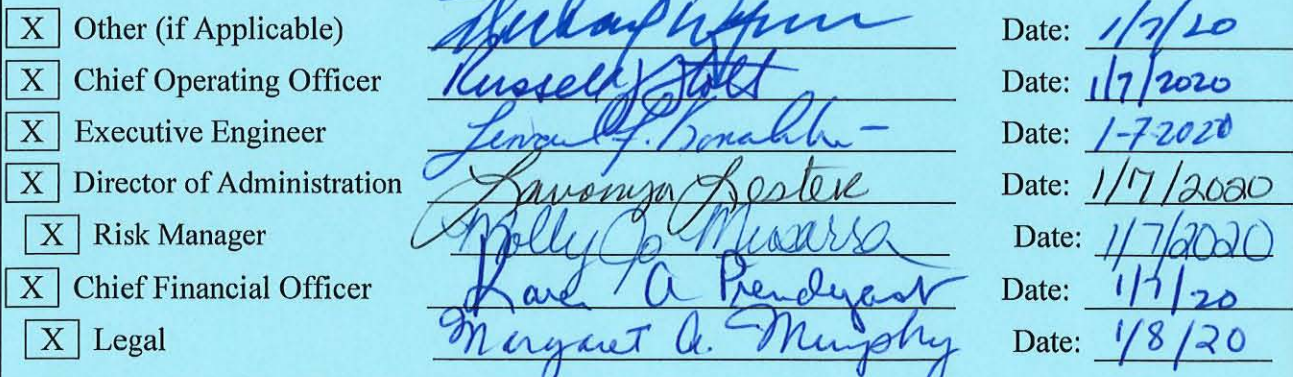 X Other (if Applicable) Date: 1/7/20
X Chief Operating Officer Russell J Stolt Date: 1/7/2020
X Executive Engineer Date: 1-7-2020
X Director of Administration Lavonya Lester Date: 1/7/2020
X Risk Manager Molly Jo Musarra Date: 1/7/2020
X Chief Financial Officer Karen A Prendergast Date: 1/7/20
X Legal Margaret A. Murphy Date: 1/8/20